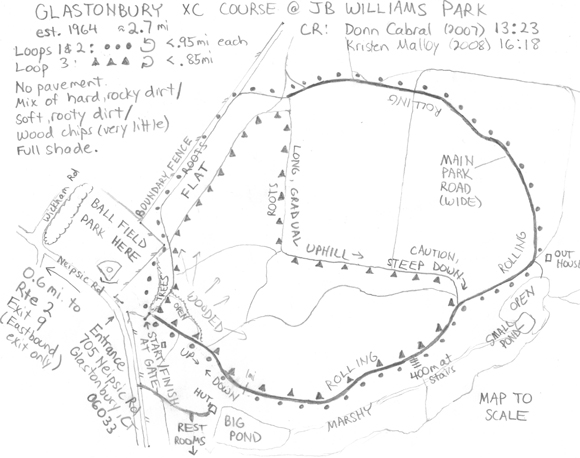 GLASTONBURY XC COURSE @ JB WILLIAMS PARK
est. 1964 ≈2.7 mi
Loops 1 & 2: <.95mi each
Loop 3: <.85mi
CR: Donn Cabral (2007) 13:23
Kristen Malloy (2008) 16:18
No pavement.
Mix of hard, rocky dirt/
soft, rooty dirt/
Wood chips (very little)
Full shade.
BOUNDARY FENCE
ROOTS
FLAT
ROOTS
LONG, GRADUAL
UPHILL →
ROLLING
MAIN
PARK
ROAD
(WIDE)
CAUTION,
STEEP DOWN
ROLLING
OUT
HOUSE
OPEN
SMALL
POND
Wickham Rd
BALL FIELD
PARK
HERE
Neipsic Rd
TREES
OPEN
WOODED
START/FINISH
AT GATE
UP →
← DOWN
ROLLING
400m at
Stairs
HUT
BIG
POND
MARSHY
REST
ROOMS
MAP TO
SCALE
0.6 mi. to
Rte 2
Exit 9
(Eastbound
exit only)
Entrance
705 Neipsic Rd
Glastonbury, CT
06033